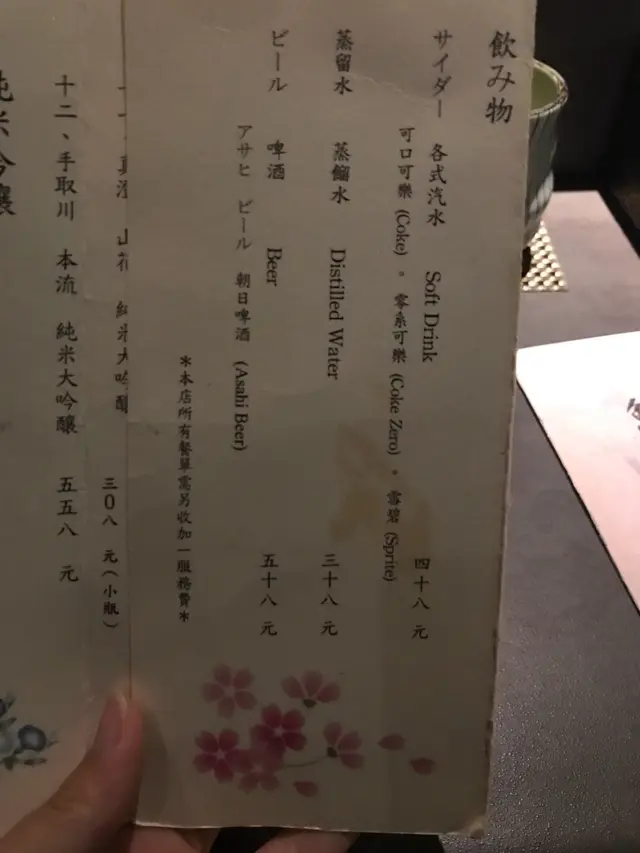 飲み物
サイダー 各式汽水 Soft Drink 四十八 元
可口可樂 (Coke) 。 零系可樂 (Coke Zero) 。 雪碧 (Sprite)
蒸留水 蒸餾水 Distilled Water 三十八 元
ビール 啤酒 Beer 五十八 元
アサヒ ビール 朝日啤酒 (Asahi Beer)
*本店所有餐單需另收加一服務費*
純米大吟釀
三0八 元(小瓶)
十二、手取川 本流 純米大吟釀 五五八 元
純米吟釀